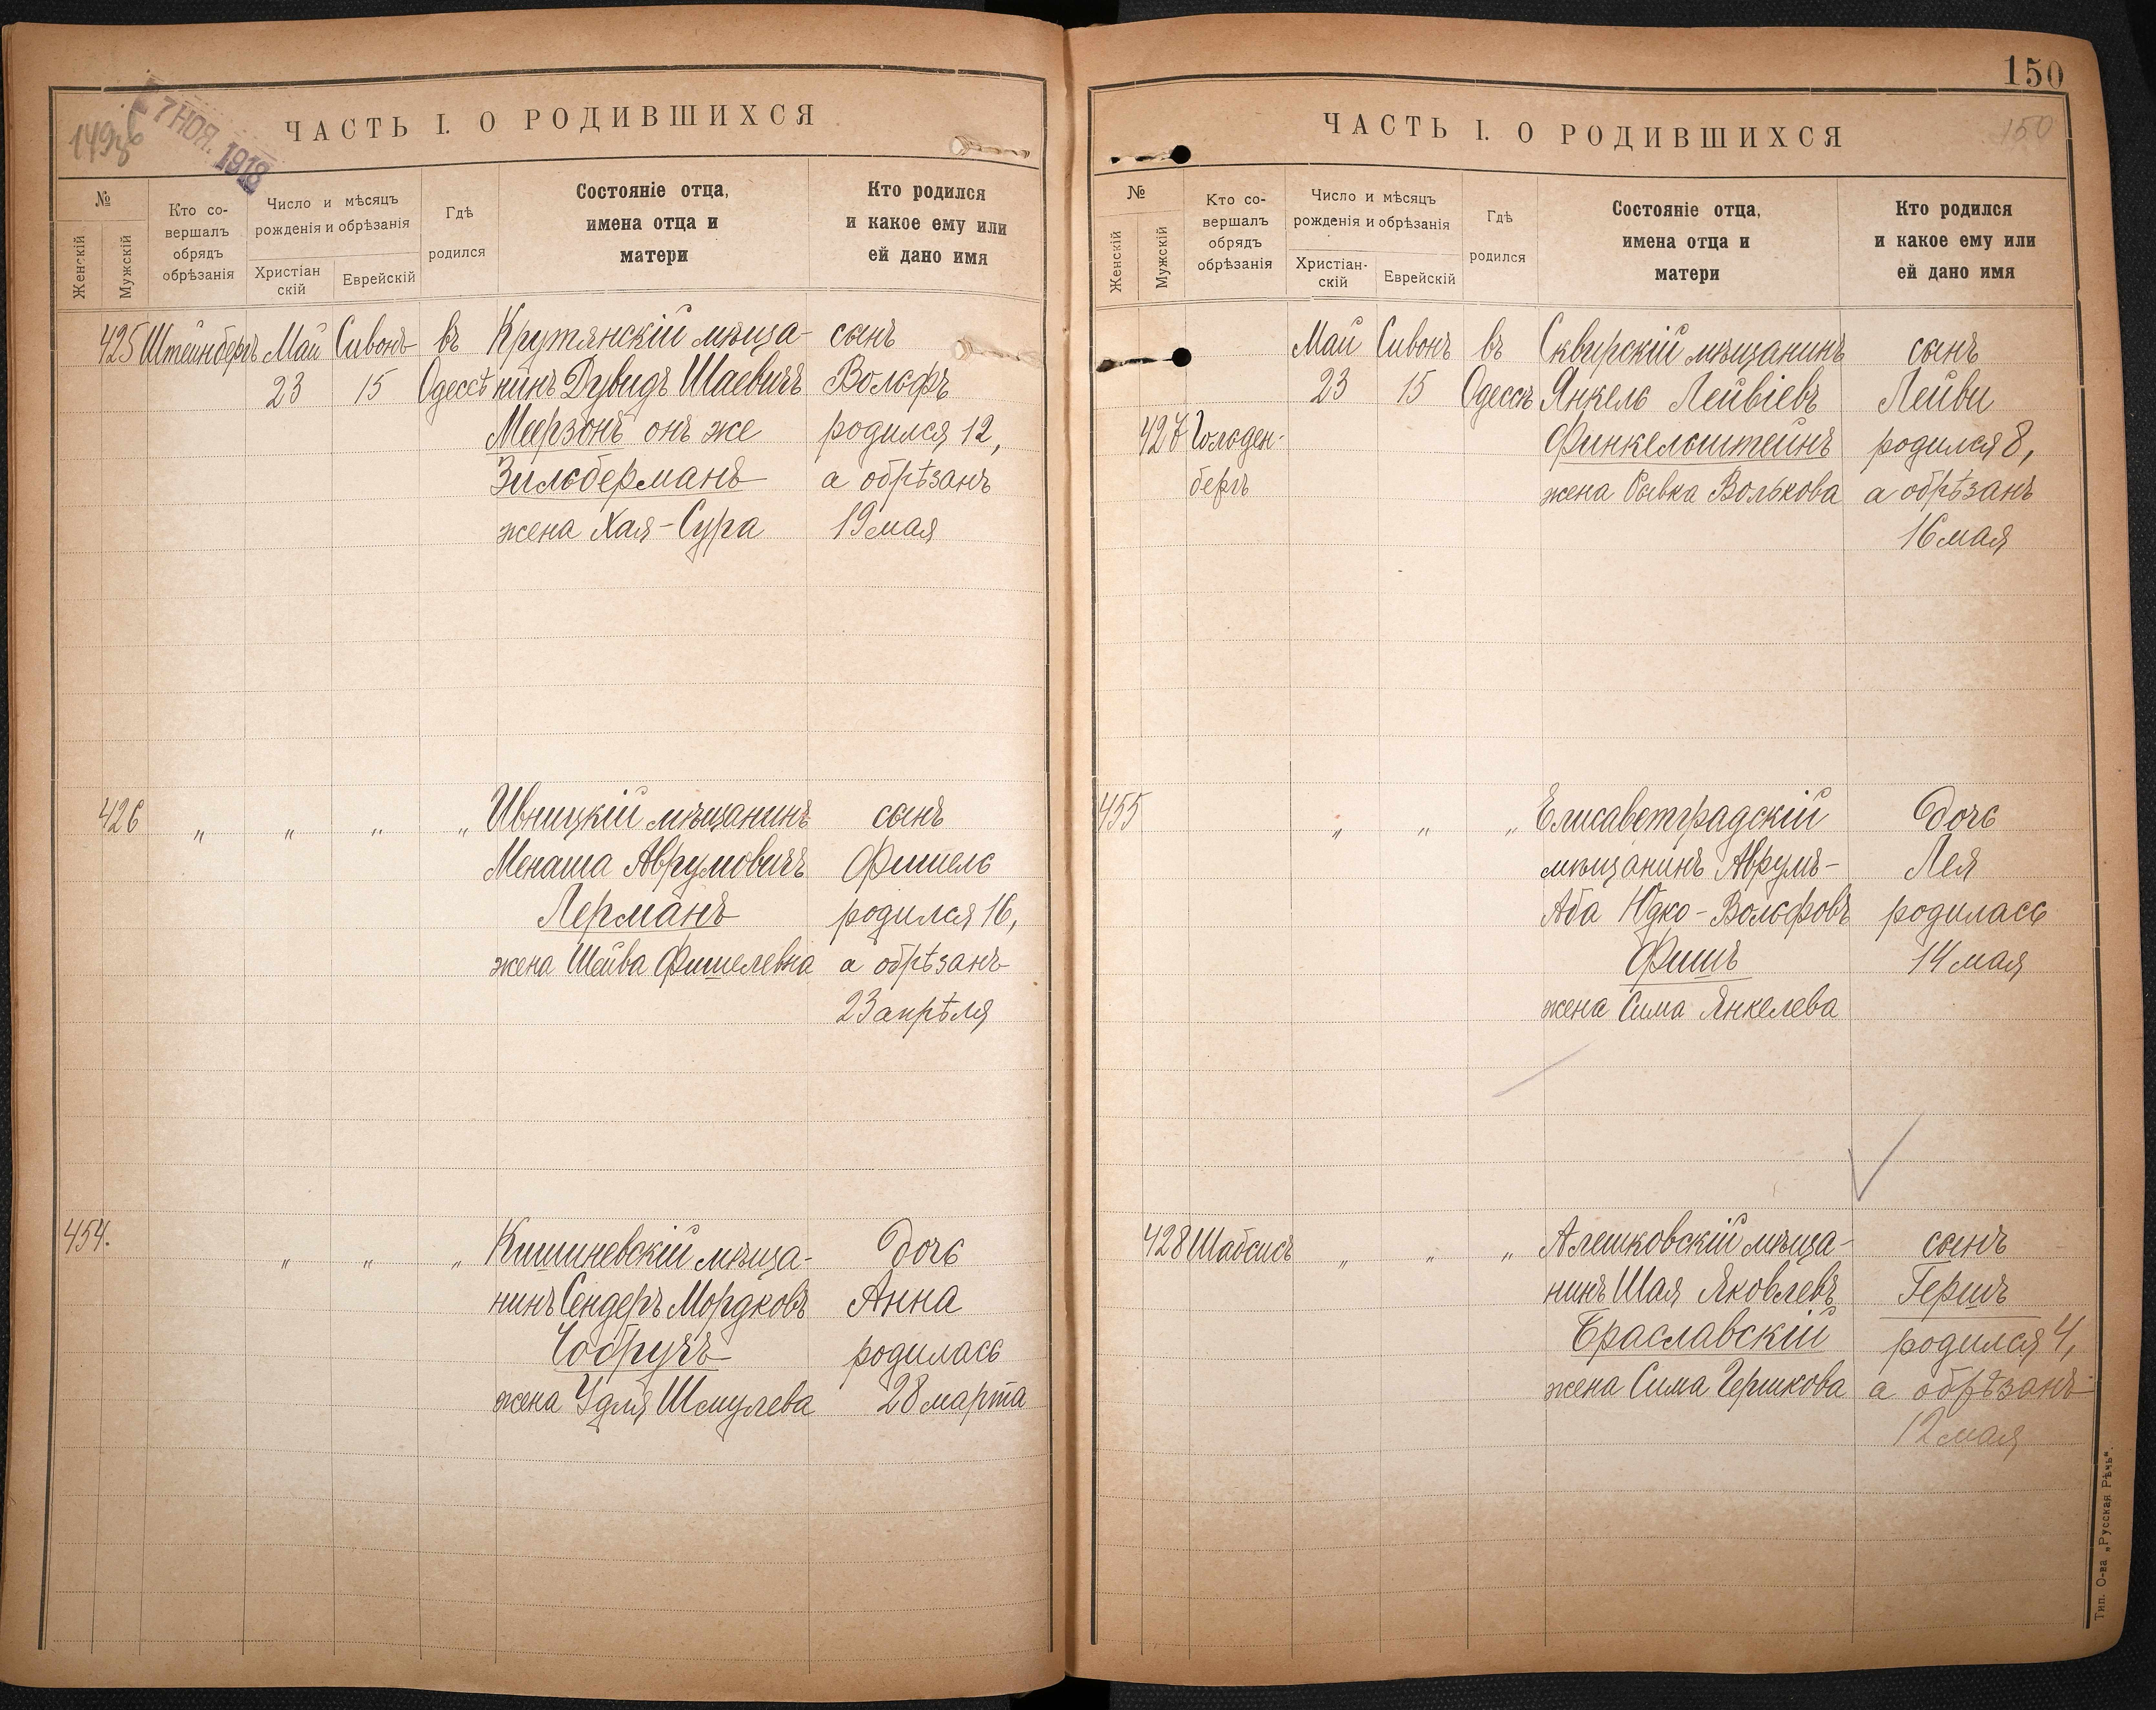 149об
7 НОЯ. 1918
ЧАСТЬ I. О РОДИВШИХСЯ
№
Женскій
Мужскій
Кто со-
вершалъ
обрядъ
обрѣзанія
Число и мѣсяцъ
рожденія и обрѣзанія
Христіан
скій
Еврейскій
Гдѣ
родился
Состояніе отца,
имена отца и
матери
Кто родился
и какое ему или
ей дано имя
425 Штейнбергъ Май Сивонъ въ Крутянскій мѣща- сынъ
23 15 Одессѣ нинъ Дувидъ Шаевичъ Вольфъ
Меерзонъ онъ же родился 12,
Зильберманъ а обрѣзанъ
жена Хая-Сура 19 мая
426 „ „ „ „ Ивницкій мѣщанинъ сынъ
Менаша Аврумовичъ Фишель
Лерманъ родился 16,
жена Шейва Фишелевна а обрѣзанъ
23 апрѣля
454. „ „ „ Кишиневскій мѣща- дочь
нинъ Сендеръ Мордковъ Анна
Чобручъ родилась
жена Удля Шмулева 28 марта
150
150
ЧАСТЬ I. О РОДИВШИХСЯ
№
Женскій
Мужскій
Кто со-
вершалъ
обрядъ
обрѣзанія
Число и мѣсяцъ
рожденія и обрѣзанія
Христіан-
скій
Еврейскій
Гдѣ
родился
Состояніе отца,
имена отца и
матери
Кто родился
и какое ему или
ей дано имя
Май Сивонъ въ Сквирскій мѣщанинъ сынъ
23 15 Одессѣ Янкель Лейвіевъ Лейви
427 Гольден- Финкельштейнъ родился 8,
бергъ жена Рывка Волькова а обрѣзанъ
16 мая
455 „ „ „ Елисаветградскій дочь
мѣщанинъ Аврумъ- Лея
Аба Юдко-Вольфовъ родилась
Фишъ 14 мая
жена Сима Янкелева
428 Шабсисъ „ „ „ Алешковскій мѣща- сынъ
нинъ Шая Яковлевъ Гершъ
Браславскій родился 4,
жена Сима Гершкова а обрѣзанъ
12 мая
Тип. О-ва „Русская Рѣчь".